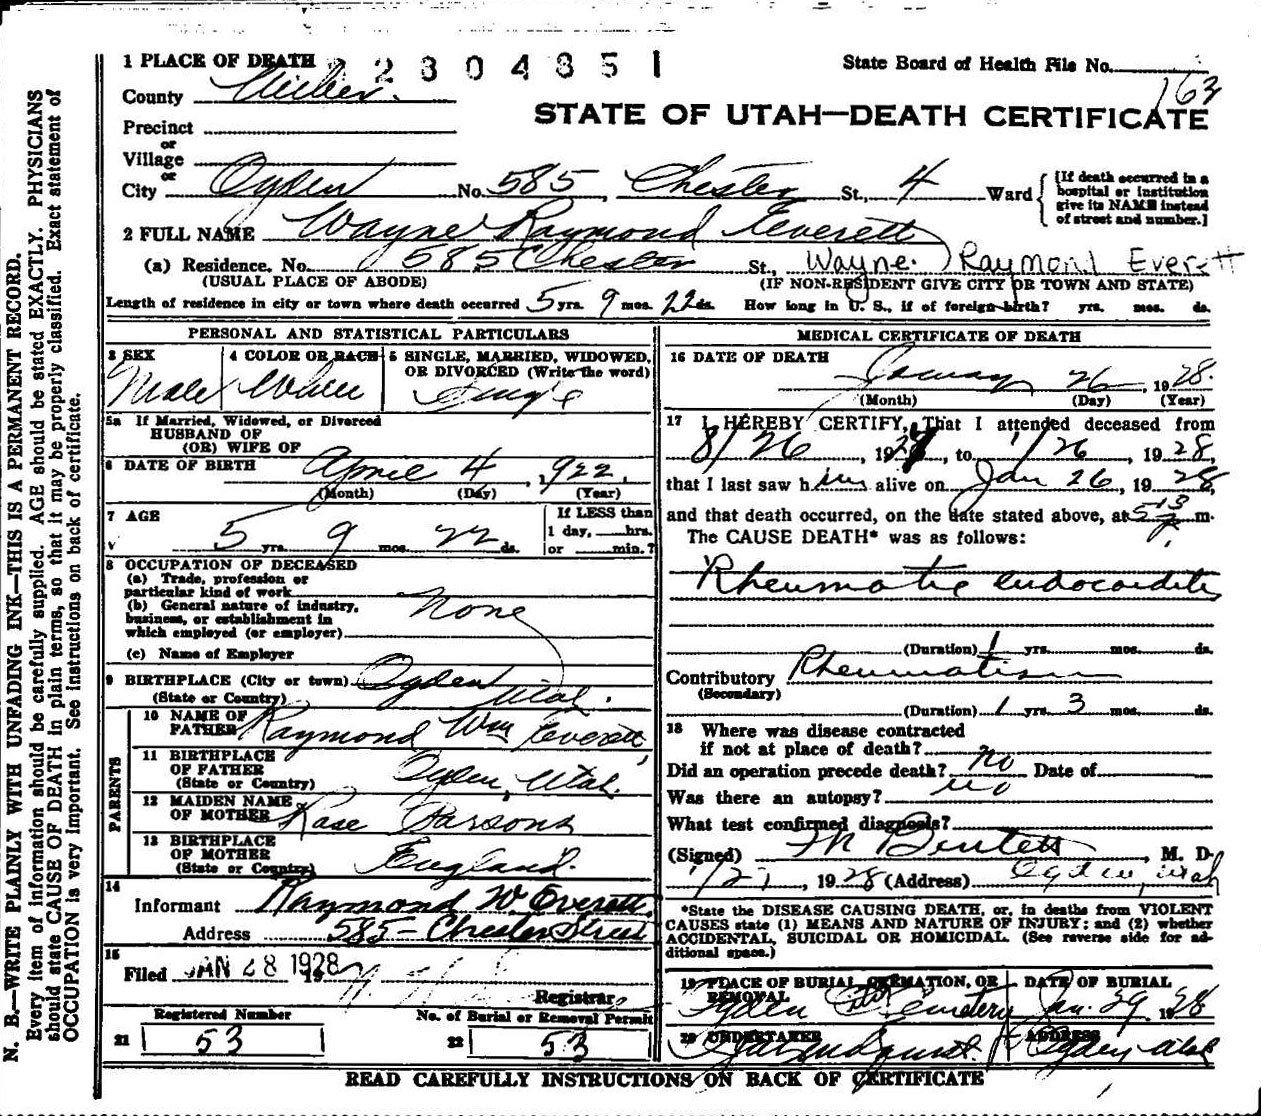 1 PLACE OF DEATH 2304851 State Board of Health File No. 163
County Weber
STATE OF UTAH—DEATH CERTIFICATE
Precinct
or
Village
or
City Ogden No. 585, Chester St., 4 Ward
[If death occurred in a
hospital or institution
give its NAME instead
of street and number.]
2 FULL NAME Wayne Raymond Everett
(a) Residence. No. 585 Chester St., Wayne Raymond Everett
(USUAL PLACE OF ABODE) (IF NON-RESIDENT GIVE CITY OR TOWN AND STATE)
Length of residence in city or town where death occurred 5 yrs. 9 mos. 22 ds. How long in U. S., if of foreign birth? yrs. mos. ds.
PERSONAL AND STATISTICAL PARTICULARS
3 SEX 4 COLOR OR RACE 5 SINGLE, MARRIED, WIDOWED,
OR DIVORCED (Write the word)
Male White Single
5a If Married, Widowed, or Divorced
HUSBAND OF
(OR) WIFE OF
6 DATE OF BIRTH April 4, 1922.
(Month) (Day) (Year)
7 AGE If LESS than
5 yrs. 9 mos. 22 ds. 1 day, hrs.
or min.?
8 OCCUPATION OF DECEASED
(a) Trade, profession or
particular kind of work
(b) General nature of industry,
business, or establishment in
which employed (or employer)
None
(c) Name of Employer
9 BIRTHPLACE (City or town) Ogden
(State or Country) Utah.
PARENTS
10 NAME OF
FATHER Raymond Wm Everett
11 BIRTHPLACE
OF FATHER
(State or Country) Ogden, Utah.
12 MAIDEN NAME
OF MOTHER Rose Parsons
13 BIRTHPLACE
OF MOTHER
(State or Country) England.
14
Informant Raymond W Everett
Address 585- Chester Street
15
Filed JAN 28 1928 19
Registrar
Registered Number No. of Burial or Removal Permit
21 53 22 53
MEDICAL CERTIFICATE OF DEATH
16 DATE OF DEATH
January 26, 1928.
(Month) (Day) (Year)
17 I HEREBY CERTIFY, That I attended deceased from
8/26, 1927, to 1/26, 1928,
that I last saw him alive on Jan 26, 1928,
and that death occurred, on the date stated above, at m.
The CAUSE DEATH* was as follows:
Rheumatic endocarditis
(Duration) 1 yrs. mos. ds.
Contributory Rheumatism
(Secondary)
(Duration) 1 yrs. 3 mos. ds.
18 Where was disease contracted
if not at place of death?
Did an operation precede death? no Date of
Was there an autopsy? no
What test confirmed diagnosis?
(Signed) , M. D.
1/27, 1928 (Address) Ogden, Utah
*State the DISEASE CAUSING DEATH, or, in deaths from VIOLENT
CAUSES state (1) MEANS AND NATURE OF INJURY; and (2) whether
ACCIDENTAL, SUICIDAL OR HOMICIDAL. (See reverse side for ad-
ditional space.)
19 PLACE OF BURIAL, CREMATION, OR DATE OF BURIAL
REMOVAL
Ogden City Cemetery Jan. 29 1928
20 UNDERTAKER ADDRESS
Ogden Utah
READ CAREFULLY INSTRUCTIONS ON BACK OF CERTIFICATE
N. B.—WRITE PLAINLY WITH UNFADING INK—THIS IS A PERMANENT RECORD.
Every item of information should be carefully supplied. AGE should be stated EXACTLY. PHYSICIANS
should state CAUSE OF DEATH in plain terms, so that it may be properly classified. Exact statement of
OCCUPATION is very important. See instructions on back of certificate.